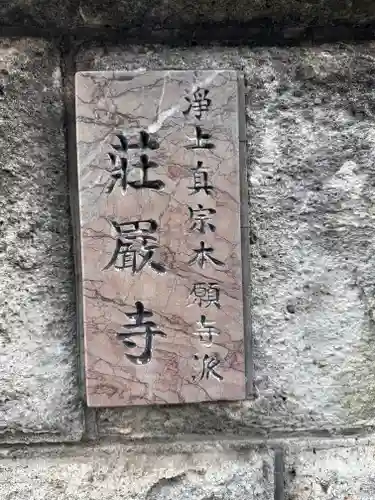 浄土真宗本願寺派
荘嚴寺